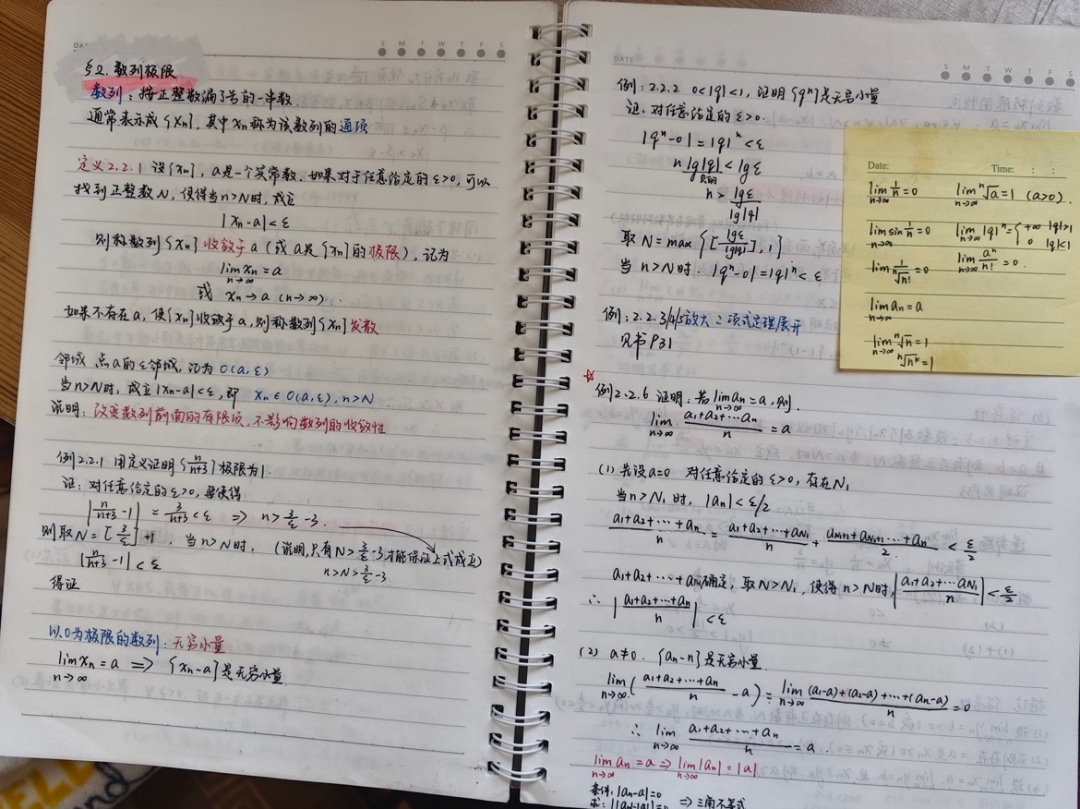 §2. 数列极限
数列：按正整数编了号的一串数
通常表示成{Xn}，其中Xn称为该数列的通项
定义2.2.1 设{Xn}，a是一个实常数，如果对于任意给定的ε>0，可以
找到正整数N，使得当n>N时，成立
|Xn-a|<ε
则称数列{Xn}收敛于a（或a是{Xn}的极限），记为
lim Xn=a
n→∞
或 Xn→a (n→∞).
如果不存在a，使{Xn}收敛于a，则称数列{Xn}发散
邻域 点a的ε邻域，记为O(a,ε)
当n>N时，成立|Xn-a|<ε，即 Xn∈O(a,ε), n>N
说明：改变数列前面的有限项，不影响数列的收敛性
例2.2.1 用定义证明{n/(n+3)}极限为1.
证：对任意给定的ε>0，要使得
|n/(n+3) -1| = 3/(n+3) <ε ⇒ n>3/ε -3.
则取N=[3/ε]+1，当n>N时，（说明，只有N>3/ε-3，才能保证上式成立）
|n/(n+3) -1|<ε n>N>3/ε-3
得证
以0为极限的数列：无穷小量
lim Xn=a ⇒ {Xn-a}是无穷小量
n→∞
DATE
S M T W T F S
例：2.2.2 0<|q|<1，证明{qⁿ}是无穷小量
证：对任意给定的ε>0.
|qⁿ-0|=|q|ⁿ<ε
n lg|q|<lgε
n> lgε/lg|q|
取N=max{[lgε/lg|q|],1}
当n>N时．|qⁿ-0|=|q|ⁿ<ε
例：2.2.3/4/5放大 二项式定理展开
见书P31
☆
例2.2.6 证明：若lim an=a，则.
n→∞
lim (a1+a2+…an)/n =a
n→∞
(1) 先设a=0 对任意给定的ε>0，存在N1
当n>N1时，|an|<ε/2
(a1+a2+…+an)/n = (a1+a2+…+aN1)/n + (aN1+1+…+an)/2 <ε/2
a1+a2+…+aN1确定，取N>N1，使得n>N时，|(a1+a2+…aN1)/n|<ε/2
∴ |(a1+a2+…+an)/n|<ε
(2) a≠0. {an-n}是无穷小量.
lim((a1+a2+…+an)/n -a) = lim ((a1-a)+(a2-a)+…+(an-a))/n =0
n→∞ n→∞
∴ lim (a1+a2+…+an)/n =a.
n→∞
lim an=a ⇒ lim|an|=|a|
n→∞ n→∞
条件：|an-a|=0
⇒三角不等式
Date: Time: : :
lim 1/n=0 lim ⁿ√a=1 (a>0).
n→∞ n→∞
lim sin 1/n=0 lim|q|ⁿ={+∞ |q|>1
n→∞ n→∞ 0 |q|<1
lim 1/ⁿ√n!=0 lim aⁿ/n!=0.
n→∞ n→∞
lim an=a
n→∞
lim ⁿ√n=1
n→∞ ⁿ√nᵏ=1